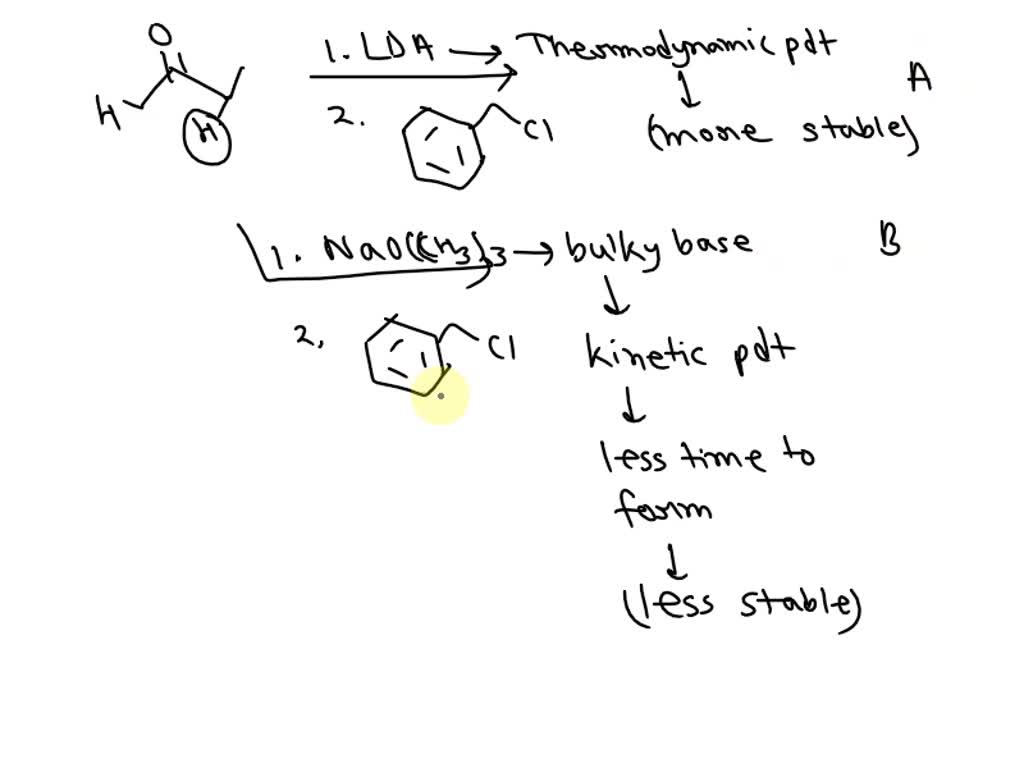 O
H
H
1. LDA → Thermodynamic pdt
A
2.
Cl
(more stable)
1. NaO(CH3)3 → bulky base
B
2,
Cl
kinetic pdt
less time to
form
(less stable)